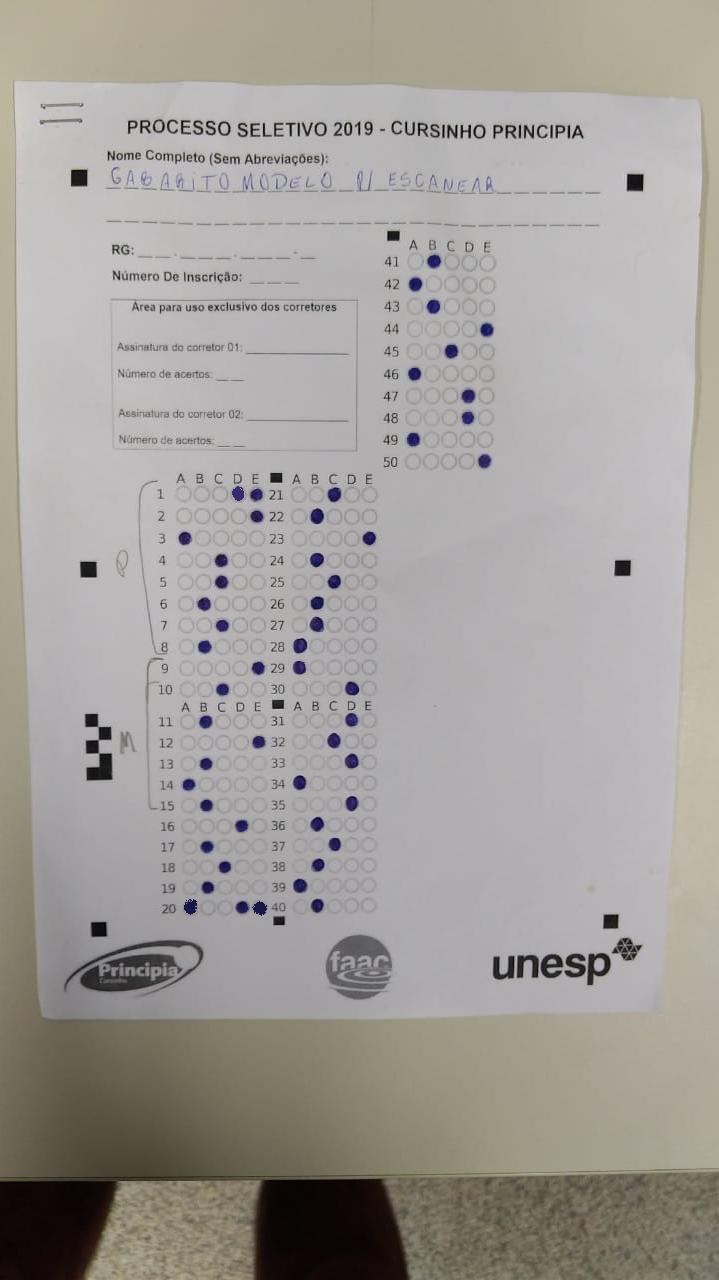 PROCESSO SELETIVO 2019 - CURSINHO PRINCIPIA
Nome Completo (Sem Abreviações):
GABARITO MODELO P/ ESCANEAR
RG: __ __ . __ __ __ . __ __ __ - __
Número De Inscrição: __ __ __
Área para uso exclusivo dos corretores
Assinatura do corretor 01:
Número de acertos: __ __
Assinatura do corretor 02:
Número de acertos: __ __
A B C D E
41
42
43
44
45
46
47
48
49
50
A B C D E A B C D E
1 21
2 22
3 23
4 24
5 25
6 26
7 27
8 28
9 29
10 30
P
A B C D E A B C D E
11 31
12 32
13 33
14 34
15 35
16 36
17 37
18 38
19 39
20 40
M
Principia
Cursinho
faac
unesp